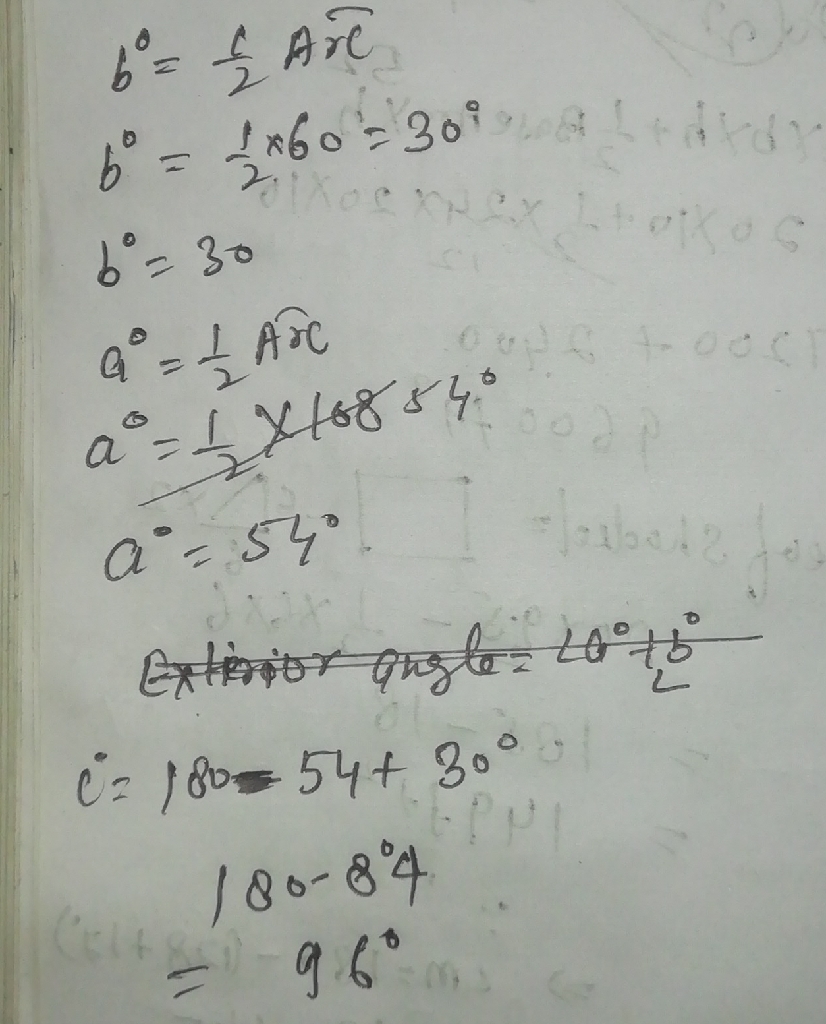 b° = 1/2 Arc
b° = 1/2 × 60 = 30°
b° = 30
a° = 1/2 Arc
a° = 1/2 × 108 54°
a° = 54°
Exterior angle = ∠a° + b°
c° = 180 - 54 + 30°
180 - 8°4
= 96°